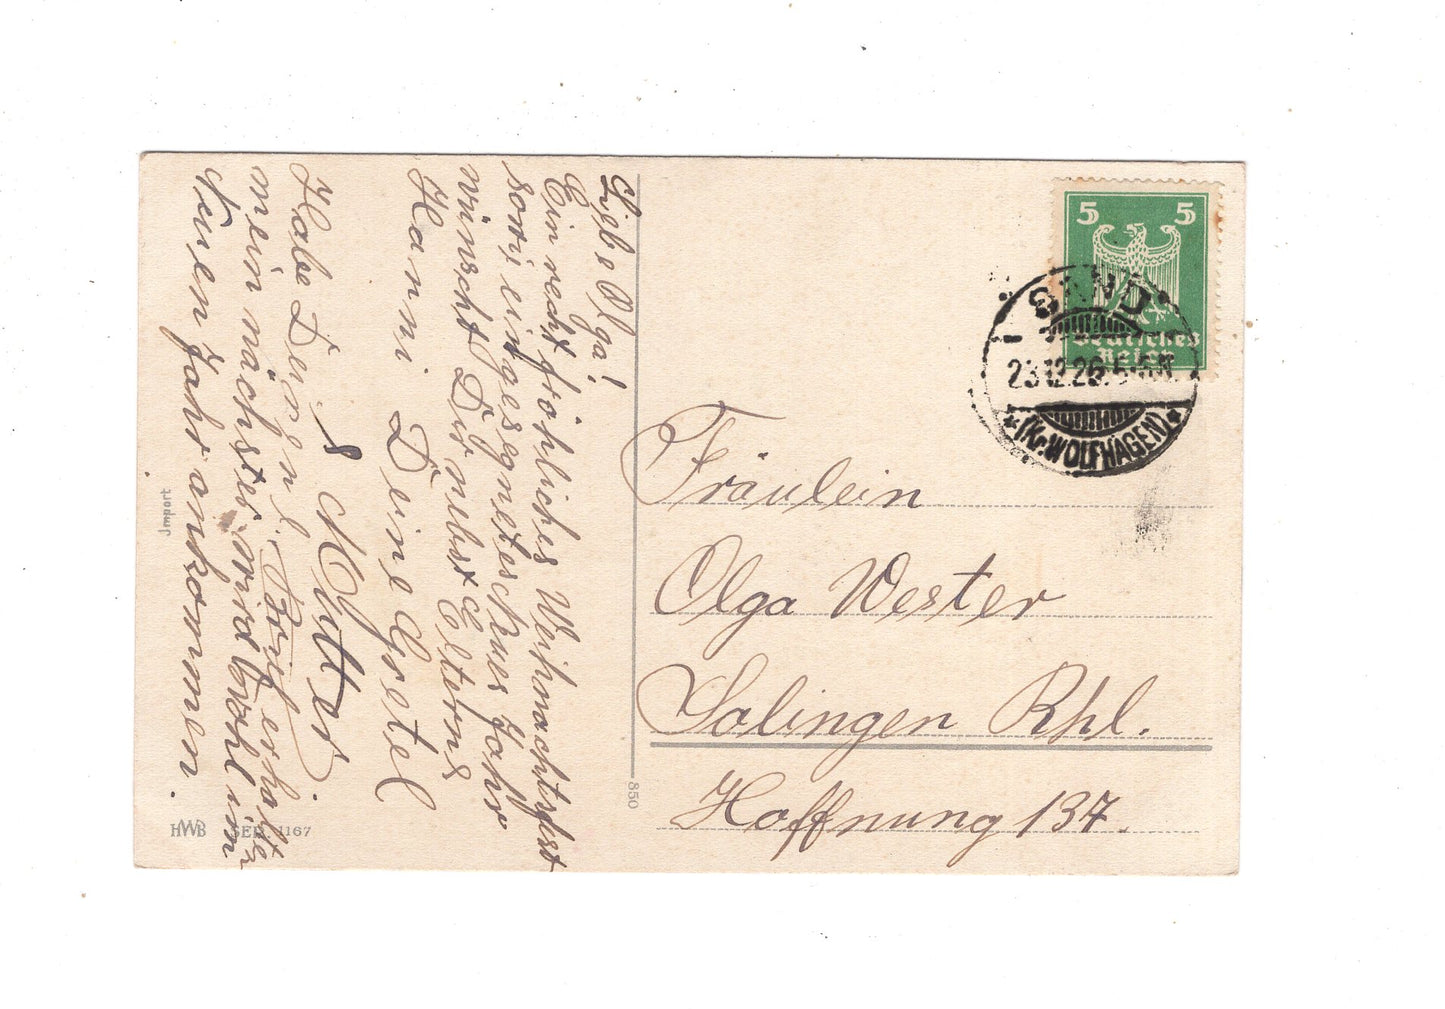 Liebe Olga!
Ein recht fröhliches Weihnachtsfest
sowie ein gesegnetes neues Jahr
wünscht Dir nebst Eltern
Hanni Deine Gretel
& Mutter
Habe Deinen Brief erhalten
mein nächster wird wohl im
neuen Jahr ankommen.
Import
HWB SER. 1167
850
5 5
Deutsches
Reich
SAND
23.12.26.5-6N
*(Kr. WOLFHAGEN)*
Fräulein
Olga Wester
Solingen Rhl.
Hoffnung 137.